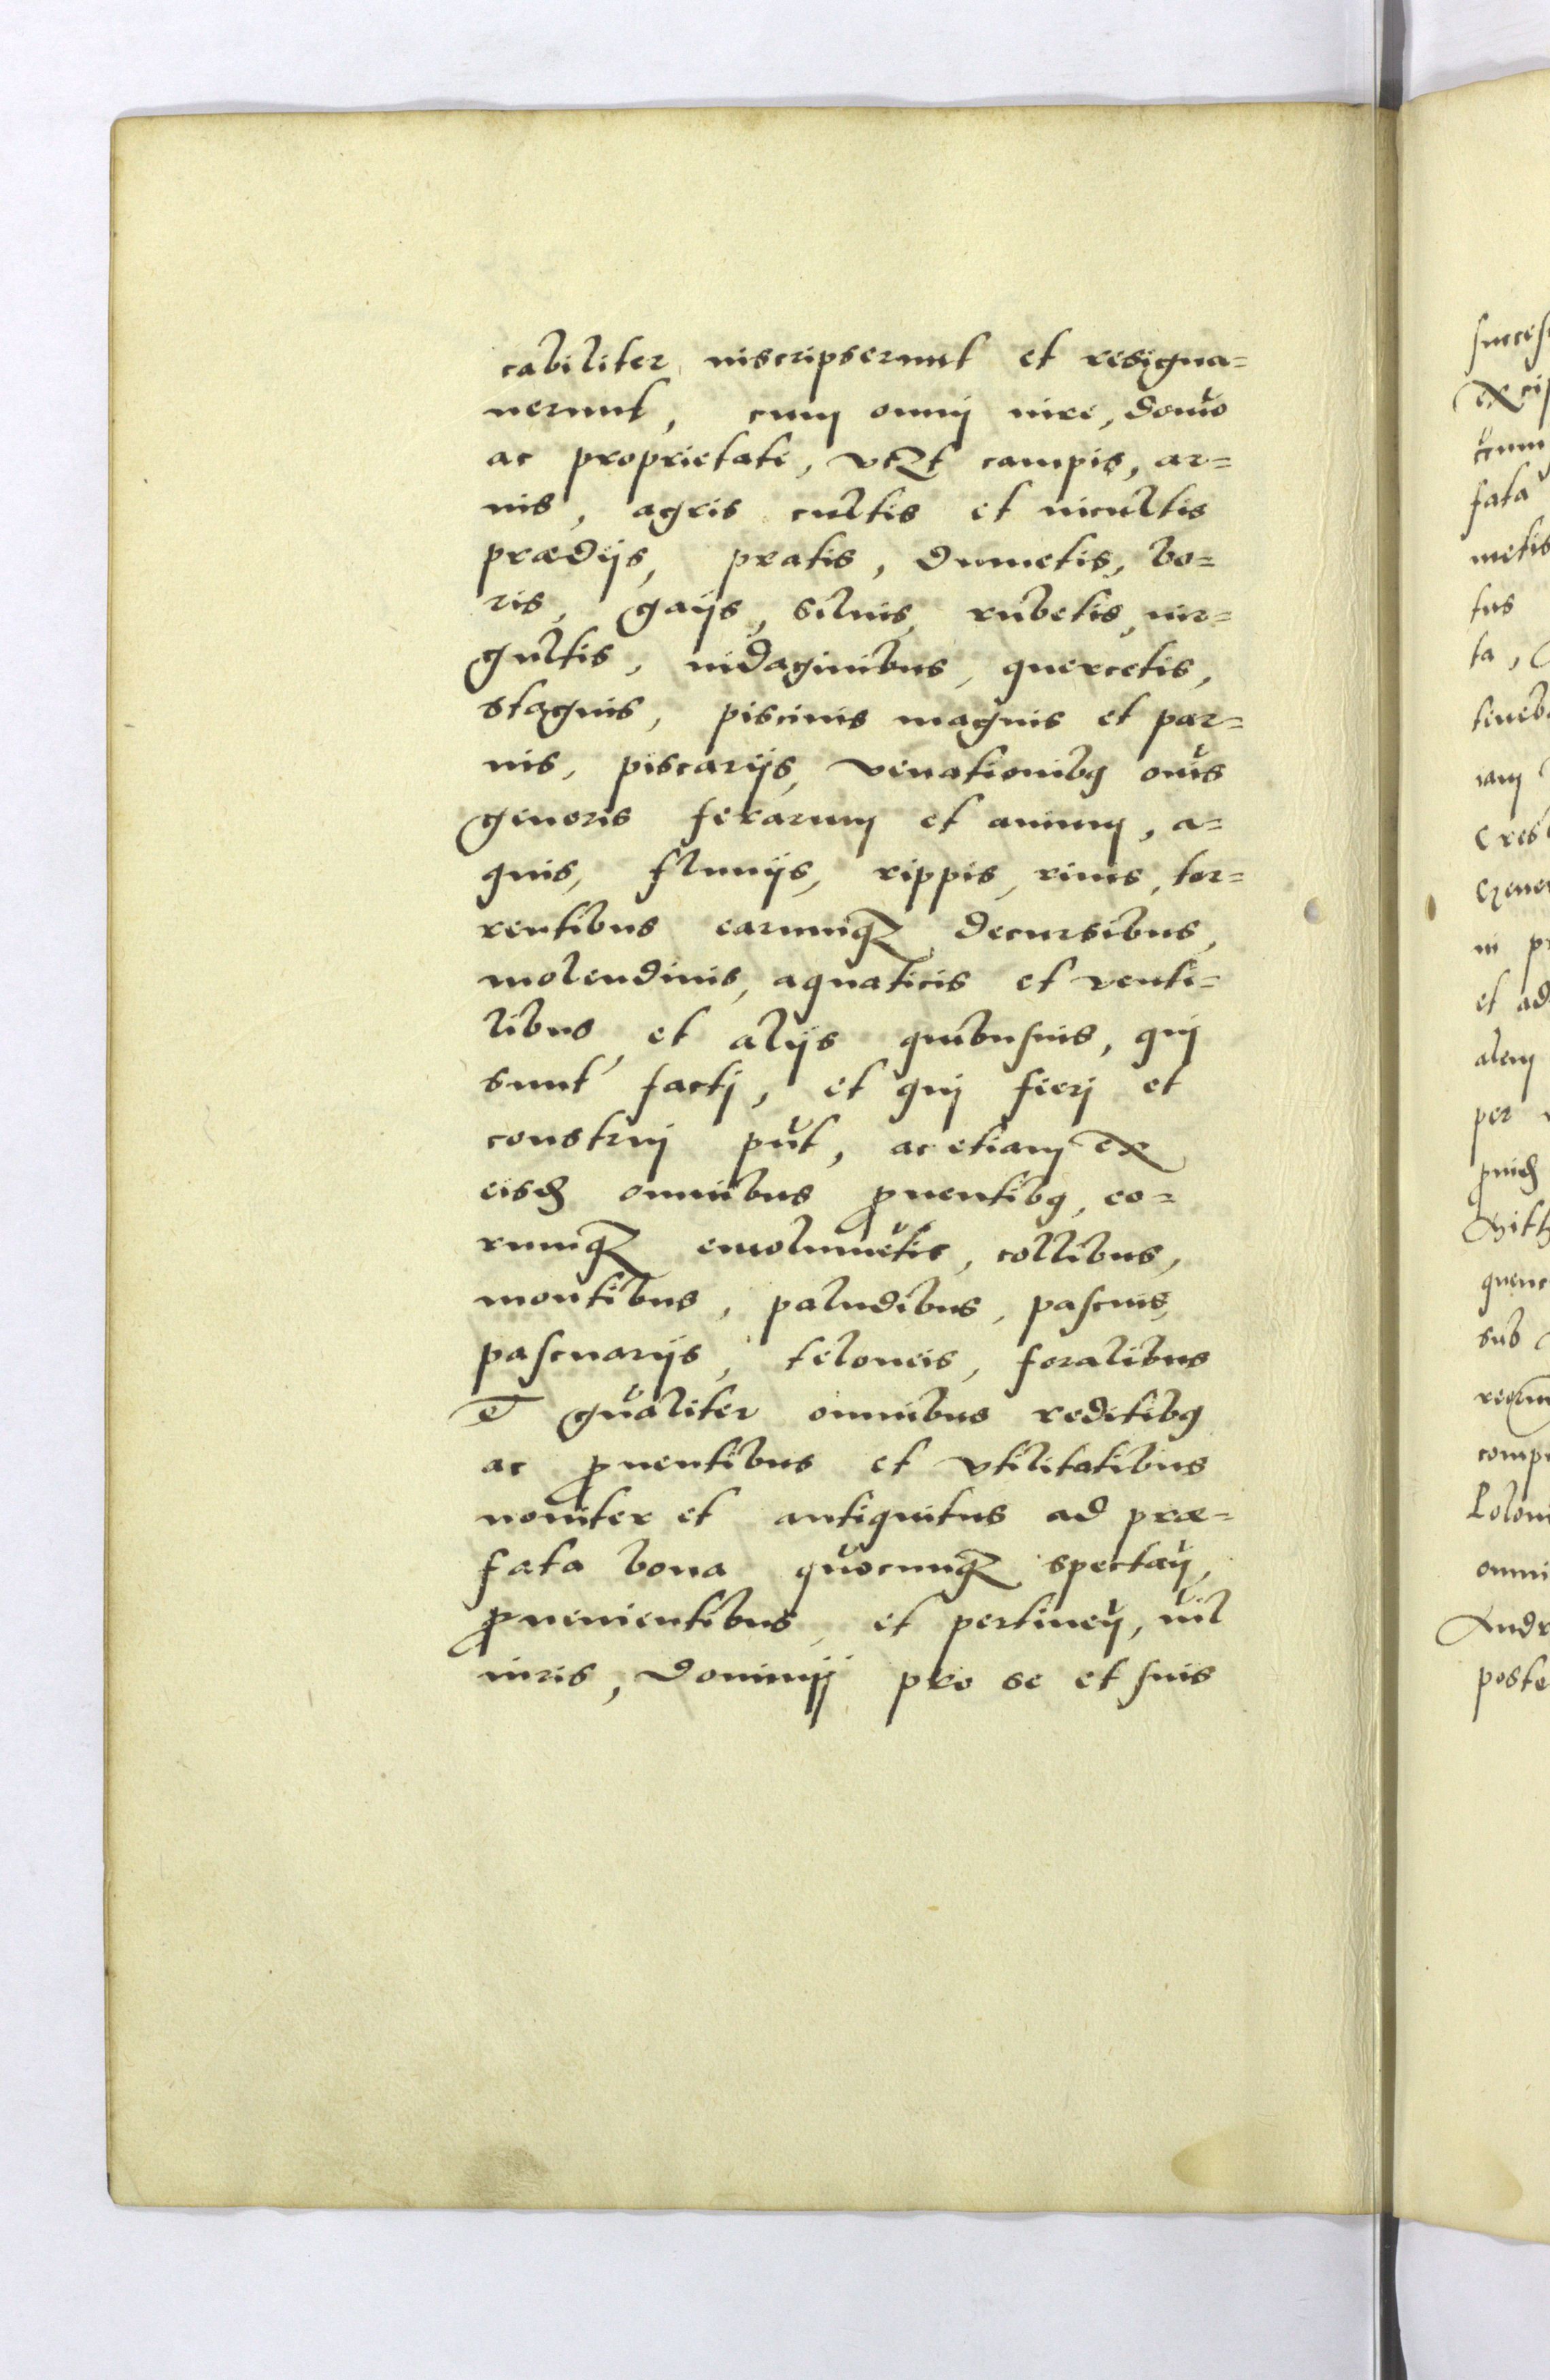 cabiliter inscripserunt et resigna=
uerunt, cum omnj iure, domīo
ac proprietate, vtꝫt campis, ar=
uis, agris cultis et incultis
prædijs, pratis, dumetis, bo=
ris, gaijs, siluis, rubetis, uir=
gultis, indaginibus, quercetis,
stagnis, piscinis magnis et par=
uis, piscarijs, venationibꝰ oīus
generis ferarum et auium, a=
quis, fluuijs, rippis, riuis, tor=
rentibus earumqꝫ decursibus,
molendinis, aquaticis et venti=
libus et alijs quibusuis, quj
sunt factj, et quj fierj et
construj pūt, ac etiam ex
eisdꝫ omnibus ꝓuentibꝰ, eo=
rumqꝫ emolumētis, collibus,
montibus, paludibus, pascuis,
pascuarijs, teloneis, foralibus
et gñaliter omnibus reditibꝰ
ac ꝓuentibus et vtilitatibus
nouiter et antiquitus ad præ=
fata bona quocunqꝫ spectañ,
ꝓuenientibus, et pertineñ, nil
iuris, dominij pro se et suis
succes
excip
fata
metis
tus
ta,
teneb
iam
in pr
et ad
alem
per
sub
comp
omni
Andr
poste